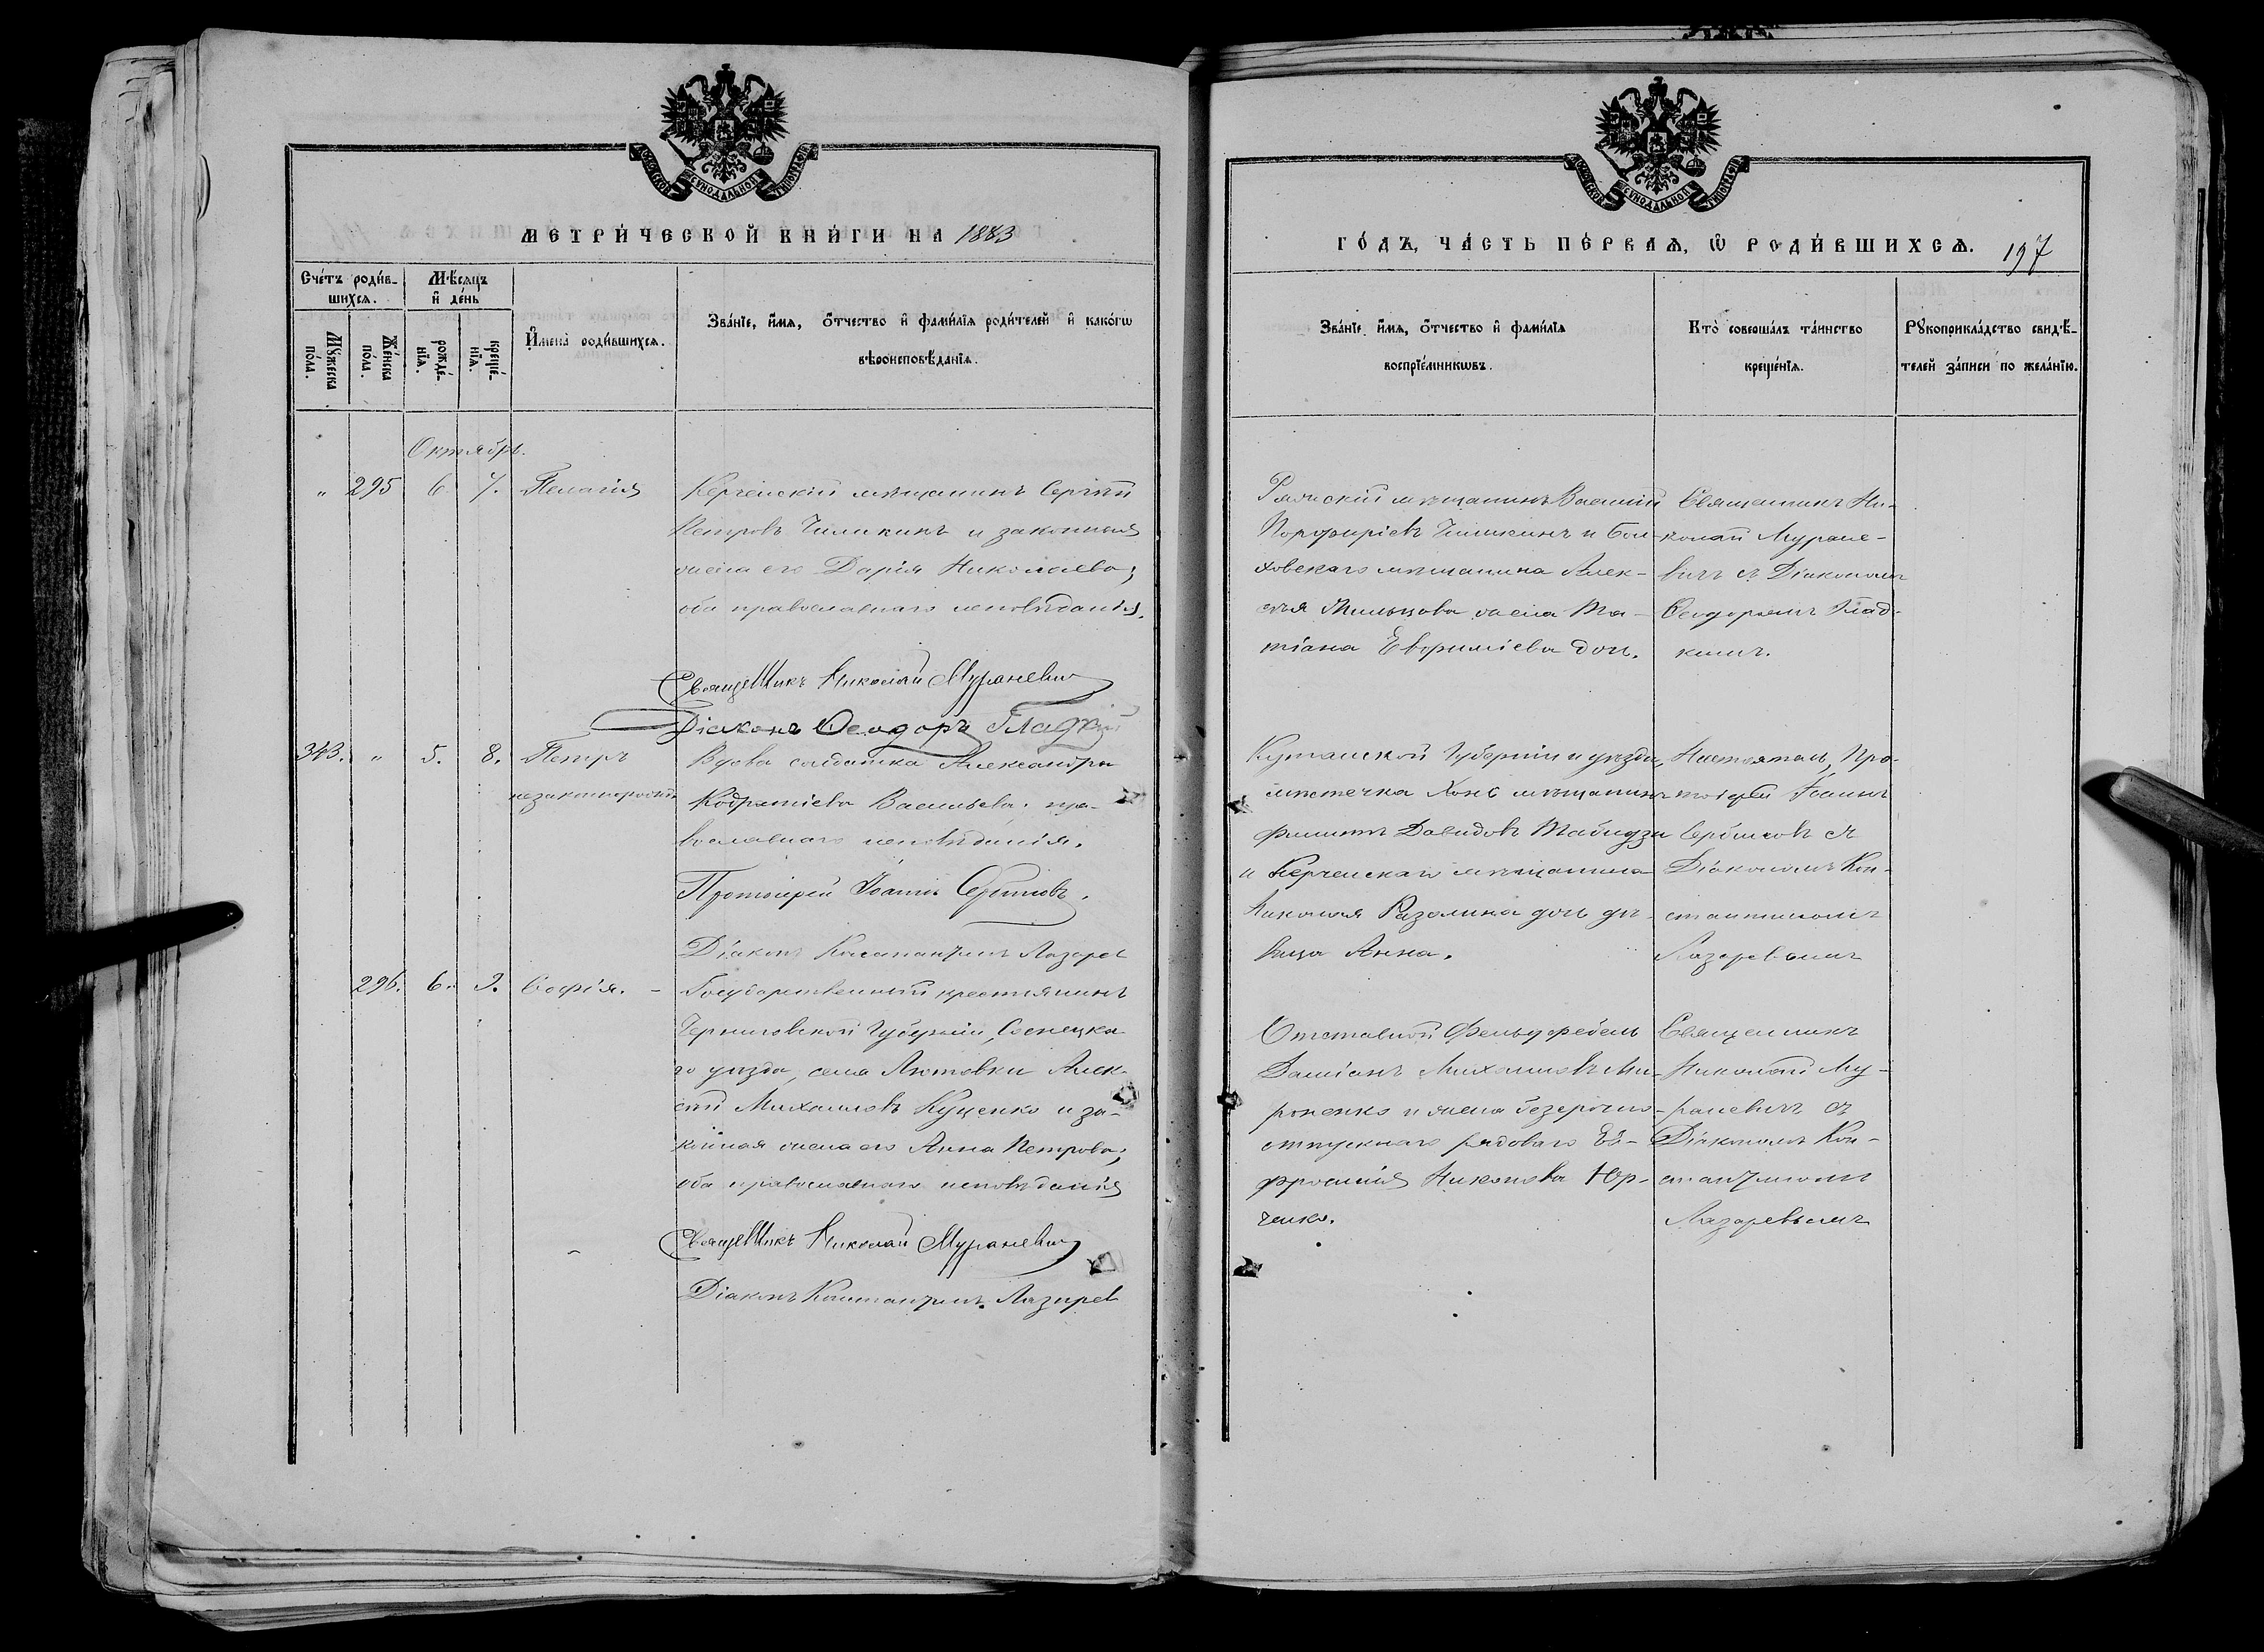 МОСКОВСКОЙ СѴНОДАЛЬНОЙ ТИПОГРАФІИ
МЕТРИ́ЧЕСКОЙ КНИ́ГИ НА 1883
Сче́тъ роди́в-
шихсѧ.
Мѣ́сѧцъ
и҆ де́нь
Мꙋ́жеска
по́ла.
Же́нска
по́ла.
рожде́-
нїѧ.
креще́-
нїѧ.
И҆мена̀ роди́вшихсѧ.
Зва́нїе, и҆́мѧ, ѻ҆́тчество и҆ фами́лїѧ роди́телей и҆ како́гѡ
вѣроисповѣ́данїѧ.
Октябрь.
" 295 6. 7. Пелагія
Керченскій мѣщанинъ Сергій
Петровъ Чиликинъ и законная
жена его Дарія Николаева;
оба православнаго исповѣданія.
Священникъ Николай Мураневич
Діаконъ Ѳеодоръ Гладкій
343. " 5. 8. Петръ
незаконнорожд
Вдова солдатка Александра
Кодратіева Васильева; пра-
вославнаго исповѣданія.
Протоіерей Іоаннъ Сербиновъ.
Діаконъ Константинъ Лазарев
296. 6. 9. Софія. -
Государственный крестьянинъ
Черниговской Губерніи, Сосницка
го уѣзда, села Лютовки Алек-
сѣй Михаиловъ Куценко и за-
конная жена его Анна Петрова;
оба православнаго исповѣданія
Священникъ Николай Мураневич
Діаконъ Константинъ Лазарев
МОСКОВСКОЙ СѴНОДАЛЬНОЙ ТИПОГРАФІИ
ГО́ДЪ, ЧА́СТЬ ПЕ́РВАѦ, Ѡ҆ РОДИ́ВШИХСѦ. 197
Зва́нїе, и҆́мѧ, ѻ҆́тчество и҆ фами́лїѧ
воспрїе́мникѡвъ.
Кто̀ соверша́лъ та́инство
креще́нїѧ.
Рꙋкоприкла́дство свидѣ́-
телей за́писи по жела́нїю.
мѣщанинъ Василій
Порфиріевъ и Бол-
ховскаго мѣщанина Алек-
сѣя жена Та-
тіана Евфиміева доч.
Священникъ Ни-
колай Муране-
вичъ съ Діакономъ
Ѳеодоромъ Глад-
кимъ.
Кутаиской Губерніи и уѣзда,
мѣстечка Хони мѣщанинъ
Филиппъ Давидовъ Табидзе
и Керченскаго мѣщанина
Николая дочь дѣ-
вица Анна.
Настоятель, Про-
тоіерей Іоаннъ
Сербиновъ съ
Діакономъ Кон-
стантиномъ
Лазаревымъ
Отставной Фельдфебель
Даміанъ Михаиловъ Ми-
роненко и жена безсрочно-
отпускнаго рядоваго Ев-
фросинія Никонова Юр-
ченко.
Священникъ
Николай Му-
раневичъ съ
Діакономъ Кон-
стантиномъ
Лазаревымъ